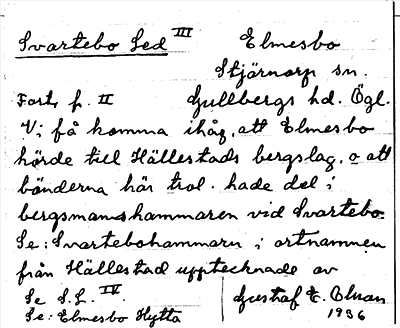 Svartebo Sed III Elmesbo
Stjärnorp sn.
Forts. fr. II Gullbergs hd. Ögl.
Vi få komma ihåg, att Elmesbo
hörde till Hällestads bergslag, o att
bönderna här trol. hade del i
bergsmanshammaren vid Svartebo.
Se: Svartebohammaren i ortnamnen
från Hällestad upptecknade av
Se S.L. IV. Gustaf E. Olsson
Se: Elmesbo Hytta 1936